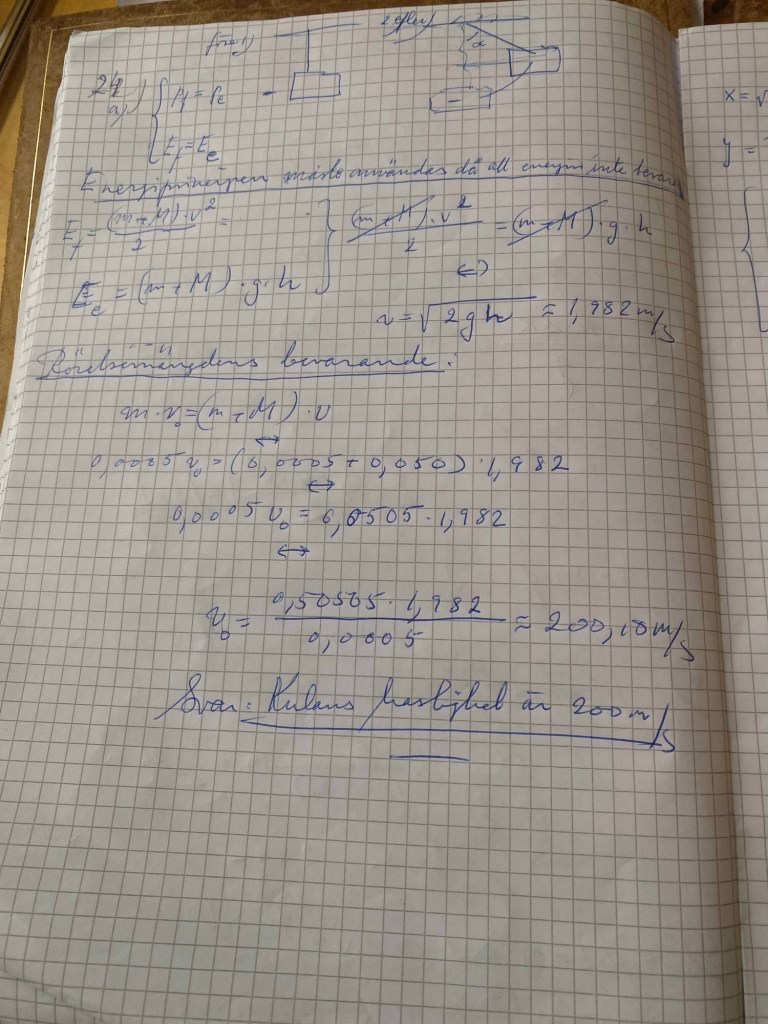 före) 2 efter)
α
24
a) { Pf = Pe
Ef = Ee
Energiprincipen måste användas då all energin inte bevaras
Ef = (m+M)·v² / 2 = } (m+M)·v² / 2 = (m+M)·g·h
⇔
Ee = (m+M)·g·h
v = √2gh ≈ 1,982 m/s
Rörelsemängdens bevarande:
m·v₀ = (m+M)·v
↔
0,0005 v₀ = (0,0005 + 0,050)·1,982
↔
0,0005 v₀ = 0,0505·1,982
↔
v₀ = 0,50505·1,982 / 0,0005 ≈ 200,18 m/s
Svar: Kulans hastighet är 200 m/s
x = √
y =